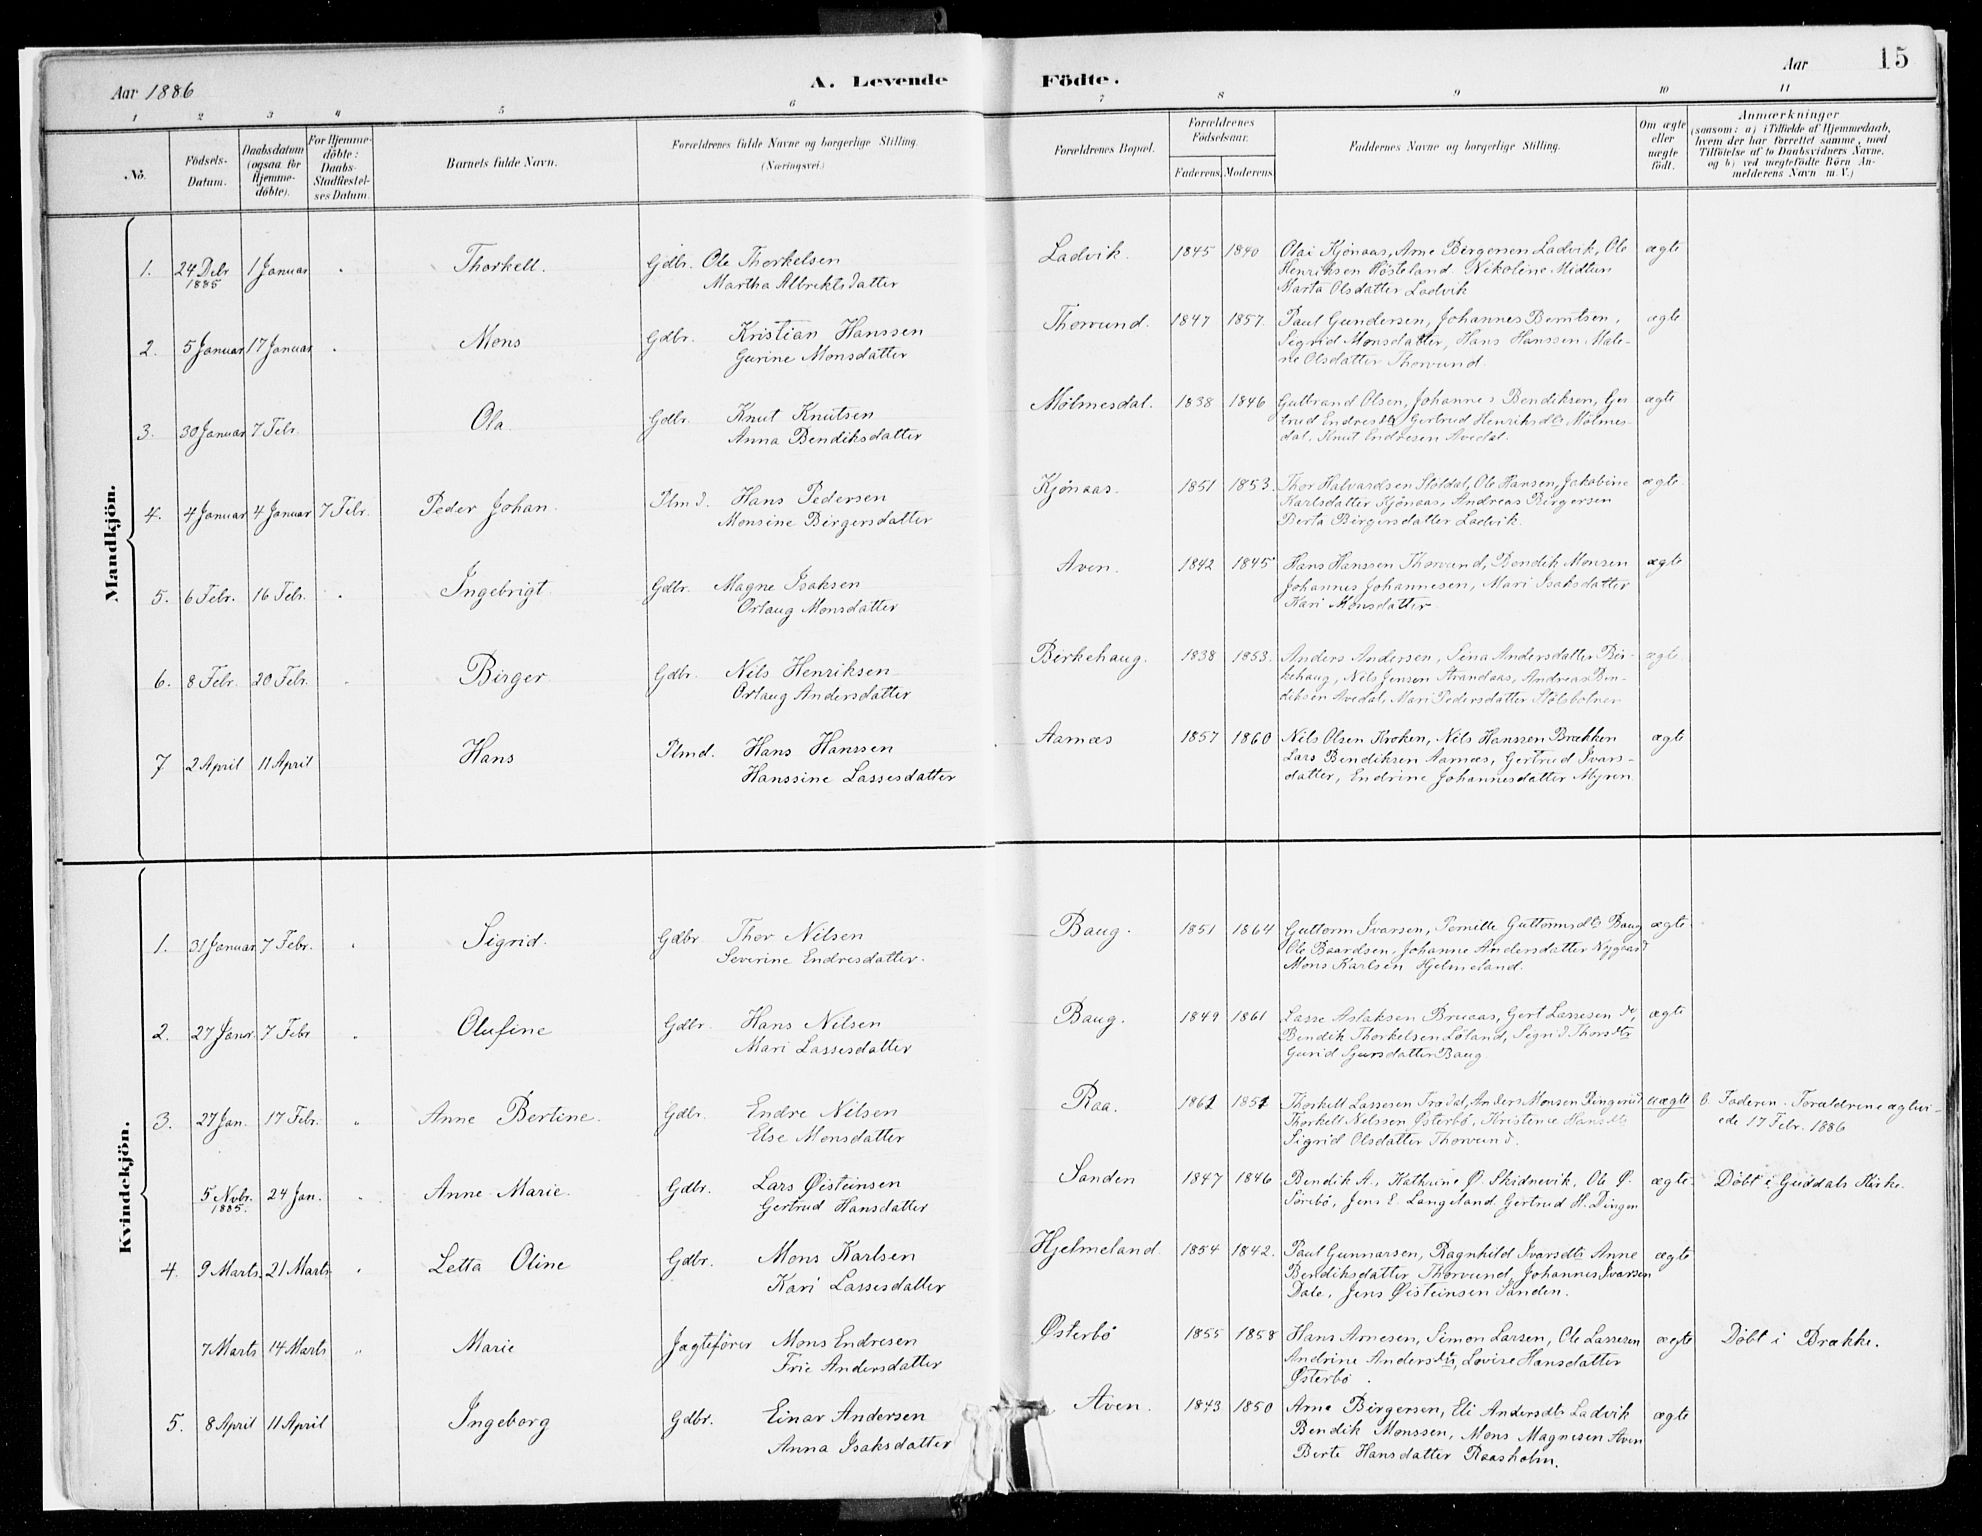 Aar 1886
A. Levende Födte.
Aar
15
1 2 3 4 5 6 7 8 9 10 11
No.
Födsels-Datum.
Daabsdatum (ogsaa for Hjemme-döbte).
For Hjemme-döbte: Daabs-Stadfæstel-ses Datum.
Barnets fulde Navn.
Forældrenes fulde Navne og borgerlige Stilling.
(Næringsvei.)
Forældrenes Bopæl.
Forældrenes Födselsaar.
Faderens. Moderens.
Faddernes Navne og borgerlige Stilling.
Om ægte eller uægte födt.
Anmærkninger
(saasom: a) i Tilfælde af Hjemmedaab,
hvem der har forrettet samme, med
Tilföielse af to Daabsvidners Navne,
og b) ved uegtefödte Börn An-
melderens Navn m. V.)
Mandkjön.
1. 24 Debr 1885 1 Januar " Thorkell. Gdbr. Ole Thorkelsen Ladvik. 1845 1840 Olai Kjönaas, Arne Birgersen Ladvik, Ole ægte
Martha Albriktsdatter Henriksen Høsteland. Nikoline Midtun
Marta Olsdatter Ladvik
2. 5 Januar 17 Januar " Mons Gdbr. Kristian Hanssen Thorvund. 1847 1857. Paul Gundersen, Johannes Berntsen, ægte
Gurine Monsdatter Sigrid Monsdatter, Hans Hanssen, Male-
ne Olsdatter Thorvund.
3. 30 Januar 7 Febr. Ola. Gdbr. Knut Knutsen Mölmesdal. 1838 1846 Guttorm Olsen, Johannes Bendiksen, Ger ægte
Anna Bendiksdatter trud Endresdtr, Gertrud Henriksdtr Mölmes-
dal, Knut Endresen Avedal.
4. 4 Januar 4 Januar 7 Febr. Peder Johan. Plmd. Hans Pedersen Kjönaas. 1851 1853. Thor Halvardsen Stöldal, Ole Hansen, Jakobine ægte.
Monsine Birgersdatter Karlsdatter Kjönaas, Andreas Birgersen
Berta Birgersdatter Ladvik.
5. 6 Febr. 16 Febr. " Ingebrigt. Gdbr. Magne Isaksen Aven. 1842 1845 Hans Hanssen Thorvund, Bendik Monsen ægte
Orlaug Monsdatter Johannes Johannesen, Mari Isaksdatter
Kari Monsdatter.
6. 8 Febr. 20 Febr. " Birger Gdbr. Nils Henriksen Birkehaug. 1838 1853. Anders Andersen, Sina Andersdatter Bir- ægte.
Orlaug Andersdatter kehaug, Nils Jensen Strandaas, Andreas Ben-
diksen Avedal, Mari Pedersdatter Stölsbotnen
7 2 April 11 April Hans Plmd. Hans Hanssen Aarnæs 1857 1860 Nils Olsen Kroken, Nils Hanssen Brækken ægte
Hanssine Lassesdatter Lars Bendiksen Aarnæs, Gertrud Ivars-
datter, Endrine Johannesdatter Myren
Kvindekjön.
1. 31 Januar 7 Febr. " Sigrid. Gdbr Thor Nilsen Baug. 1851 1864 Guttorm Ivarsen, Pernille Guttormsdtr Baug ægte
Severine Endresdatter. Ole Baardsen, Johanne Andersdatter Nygaard
Mons Karlsen Hjelmeland.
2. 27 Janr. 7 Febr " Olufine Gdbr. Hans Nilsen Baug. 1849 1861 Lasse Aslaksen Bruaas, Gert Lassesen do, ægte
Mari Lassesdatter Bendik Thorkelsen Löland, Sigrid Thorsdtr
Gurid Sjursdatter Baug
3. 27 Jan. 17 Febr. " Anne Bertine. Gdbr. Endre Nilsen Raa. 1861 1851 Thorkell Lassesen Trædal, Anders Monsen Ringerud uægte b. Faderen. Forældrene ægtevi-
Else Monsdatter Thorkell Nilssen Østerbö, Kristense Hansdtr ede 17 Febr. 1886
Sigrid Olsdatter Thorvund.
5 Nvbr. 1885. 24 Jan. " Anne Marie. Gdbr. Lars Øisteinsen Sanden 1847 1846 Bendik A., Kathrine Ø. Skidnevik, Ole Ø. ægte. Döbt i Guddals Kirke.
Gertrud Hansdatter Sörebö, Jens E. Langeland. Gertrud H. Dingen
4. 9 Marts. 21 Marts " Letta Oline Gdbr. Mons Karlsen Hjelmeland. 1854 1842. Paul Gunnarsen, Ragnhild Ivarsdtr Anne ægte
Kari Lassesdatter Bendiksdatter Thorvund, Johannes Ivarsen
Dale, Jens Øisteinsen Sanden.
7 Marts 14 Marts " Marie Jagtefører Mons Endresen Østerbö 1855 1858 Hans Arnesen, Simon Larsen, Ole Lassesen ægte Döbt i Brække.
Frie Andersdatter Andrine Andersdtr, Lovise Hansdatter
Østerbö.
5. 8 April 11 April Ingeborg Gdbr. Einar Andersen Aven. 1843 1850 Arne Birgersen, Eli Andersdtr Ladvik ægte
Anna Isaksdatter Bendik Monssen, Mons Magnesen Aven
Berte Hansdatter Raasholm.